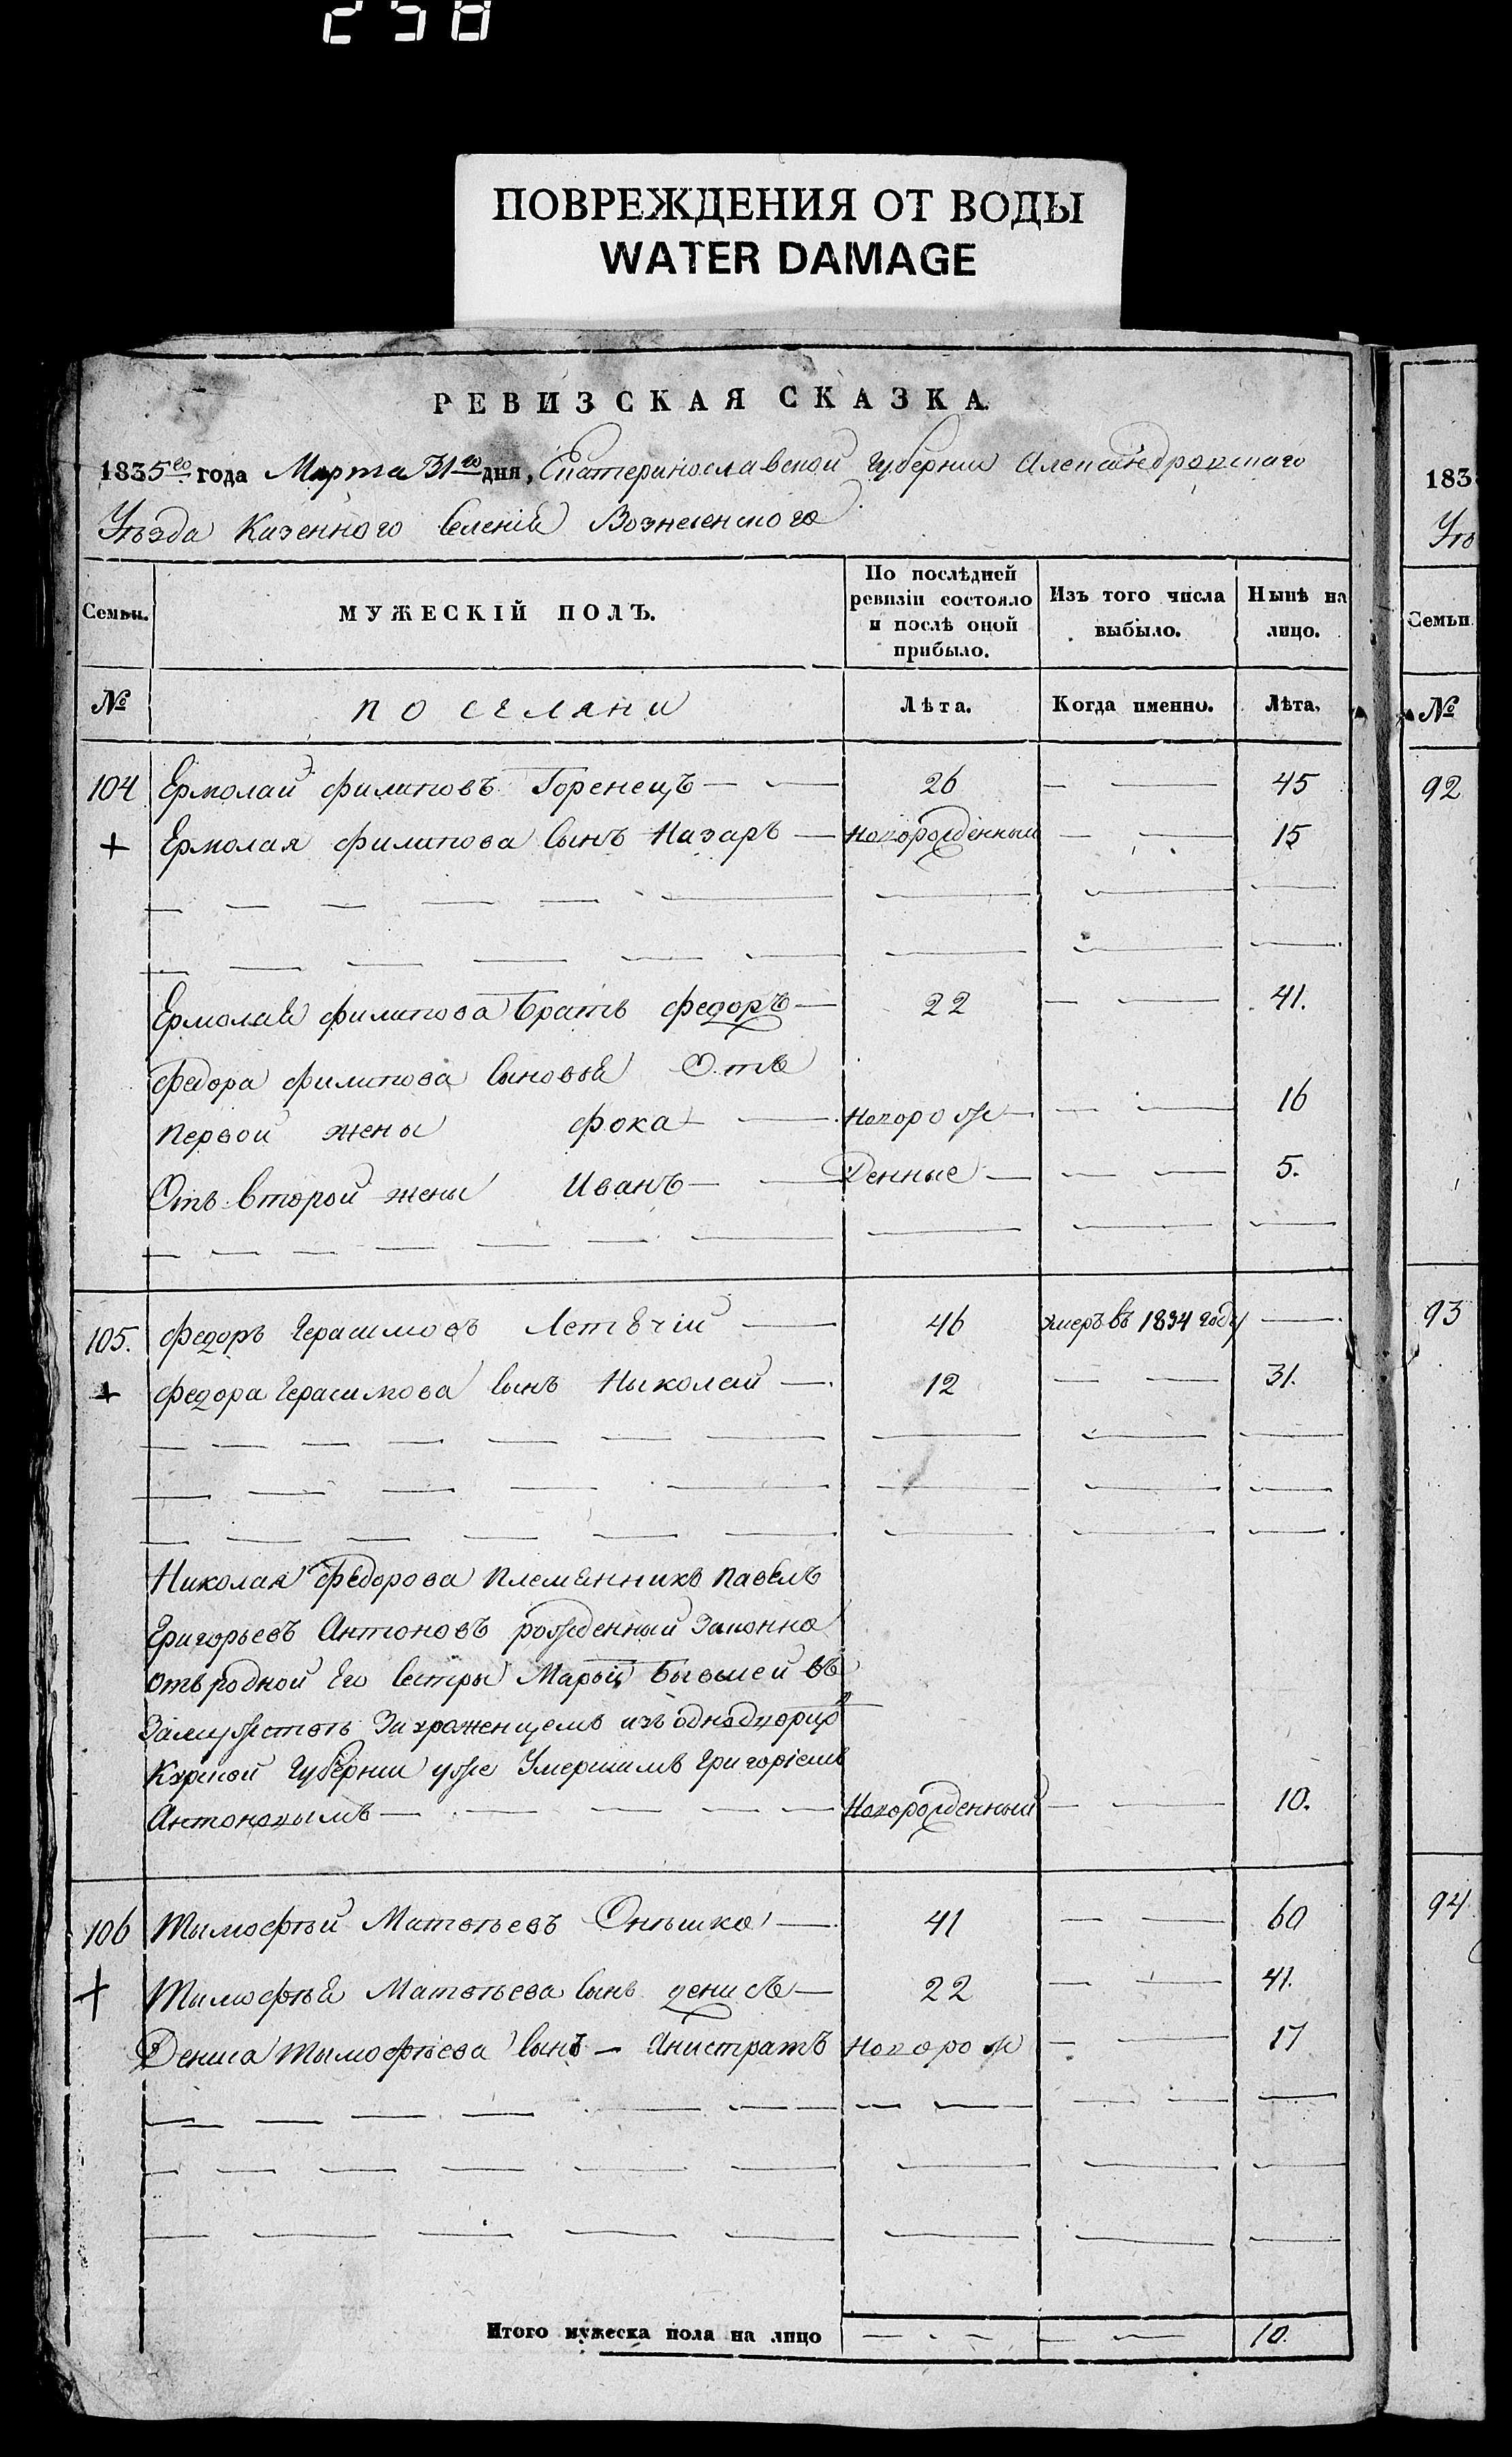 258
ПОВРЕЖДЕНИЯ ОТ ВОДЫ
WATER DAMAGE
РЕВИЗСКАЯ СКАЗКА.
1835го года Марта 31го дня, Екатеринославской Губернии Александровскаго
Уѣзда Казеннаго Селенія Вознесенскаго
Семьи. МУЖЕСКІЙ ПОЛЪ. По послѣдней ревизіи состояло и послѣ оной прибыло. Изъ того числа выбыло. Нынѣ на лицо.
№ поселяни Лѣта. Когда именно. Лѣта.
104 Ермолай Филиповъ Горенецъ — — 26 — — 45
+ Ермолая Филипова сынъ Назаръ — Новорожденный — — 15
Ермолая Филипова братъ Федоръ — 22 — — 41.
Федора Филипова сыновья Отъ
первой жены Фока — — Новорож — — 16
Отъ второй жены Иванъ — — денные — — — 5.
105. Федоръ Герасимовъ Летючій — 46 умеръ въ 1834 году — 
+ Федора Герасимова сынъ Николай — 12 — — 31.
Николая Федорова племенникъ Павелъ
Григорьевъ Антоновъ рожденный законно
отъ родной его сестры Марьи бывшей въ
замужствѣ за уроженцемъ изъ однодворцо
Курской Губернии уже умершимъ Григоріемъ
Антоновымъ — — — — — Новорожденный — — 10.
106 Тимофѣй Матвѣевъ Онѣшко — 41 — — 60
+ Тимофѣя Матвѣева сынъ Денисъ — 22 — — 41.
Дениса Тимофѣева сынъ — Анистратъ Новорож — — 17
Итого мужеска пола на лицо — — — — — 10.
183
Уѣ
Семьи
№
92
93
94